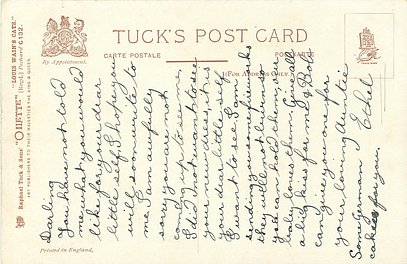 TUCK'S POST CARD
By Appointment.
CARTE POSTALE
POSTKARTE
(For Address Only.)
Raphael Tuck & Sons' "OILETTE" "LOUIS WAIN'S CATS."
[Regd.] Postcard 6132
ART PUBLISHERS TO THEIR MAJESTIES THE KING & QUEEN.
Printed in England.
Darling
You have not told
me what you would
like for your dear
little self, I hope you
will soon write to
me, I am awfully
sorry you are not
coming up to see me,
I did just want to see
your new dress, it is
your dear little self
I want to see, I am
sending you some
they will not be so
you can hold them, our
baby loves them, Give all
a big kiss for me & Bob
can give you one for
your loving Auntie
Ethel
Some German
cakes for you.